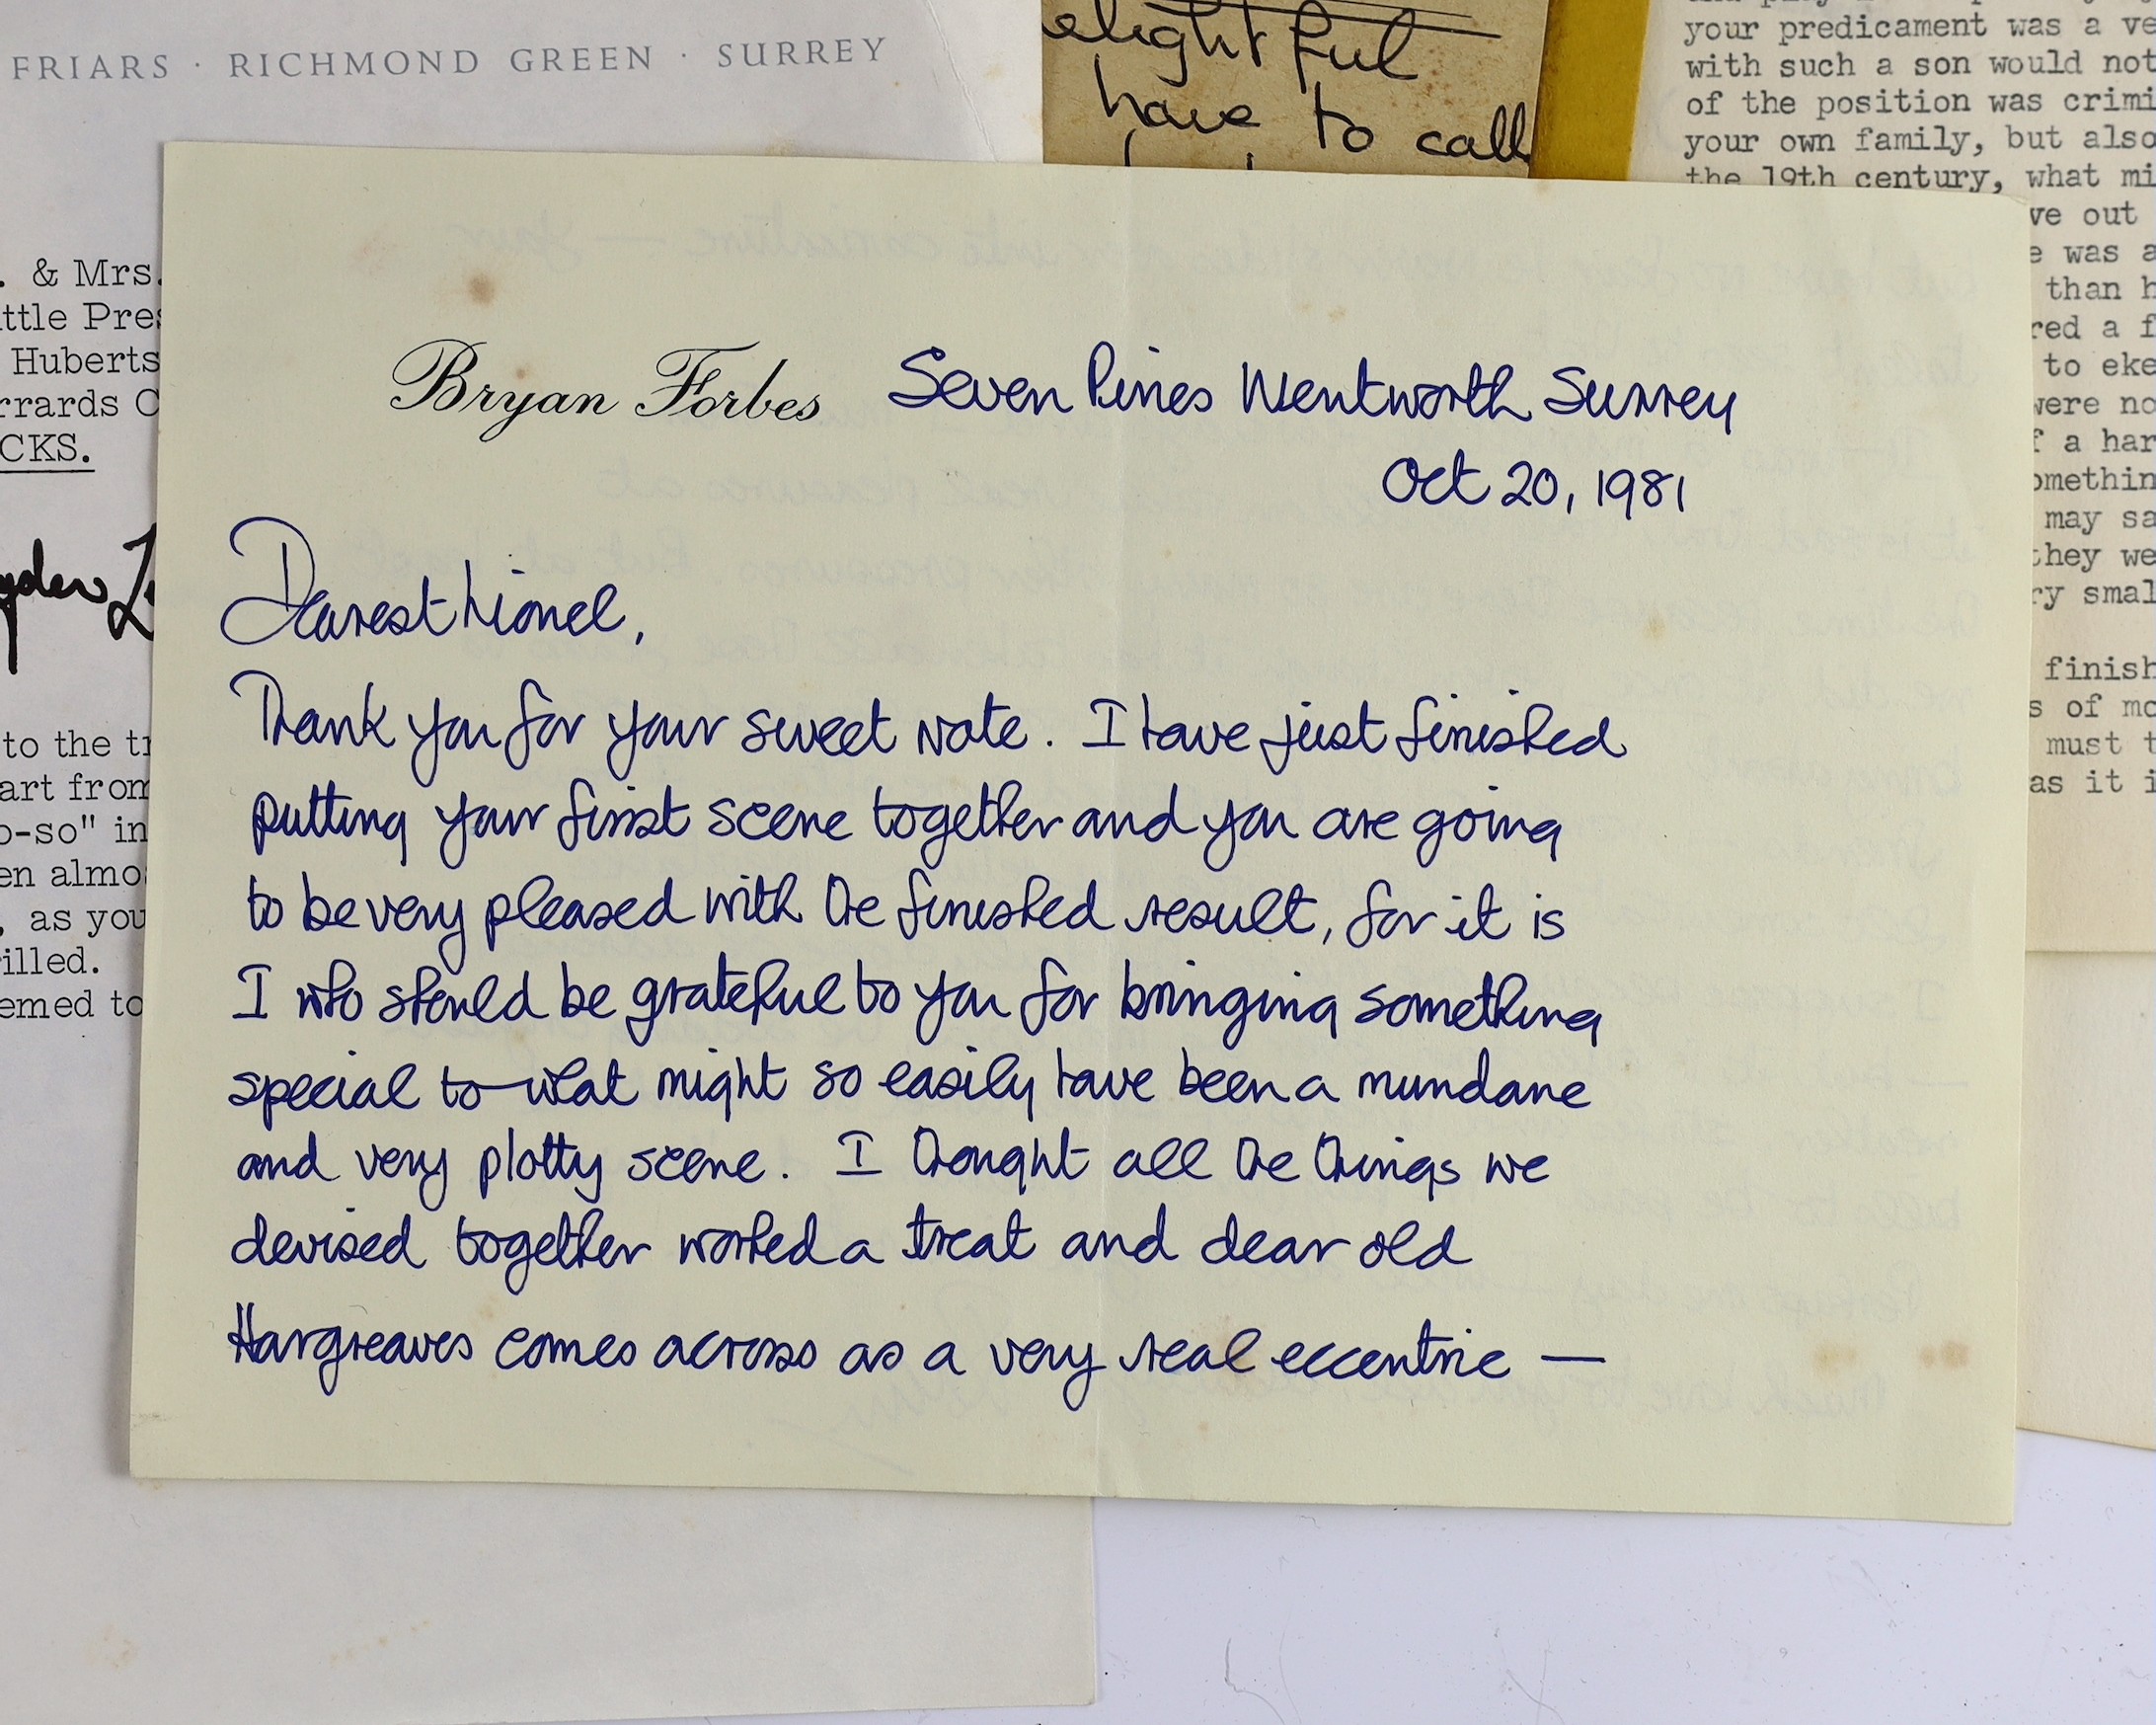 FRIARS · RICHMOND GREEN · SURREY
. & Mrs.
Huberts
CKS.
to the
art from
o-so" in
en almo
, as you
illed.
emed to
elightful
have to call
your predicament was a ve
with such a son would not
of the position was crimi
your own family, but also
the 19th century, what mi
ve out
e was a
than h
red a f
to eke
were no
f a har
omethin
may sa
they we
ry smal
finish
s of mo
must t
as it i
Bryan Forbes Seven Pines Wentworth Surrey
Oct 20, 1981
Dearest Lionel,
Thank you for your sweet note. I have just finished
putting your first scene together and you are going
to be very pleased with the finished result, for it is
I who should be grateful to you for bringing something
special to what might so easily have been a mundane
and very plotty scene. I thought all the things we
devised together worked a treat and dear old
Hargreaves comes across as a very real eccentric —